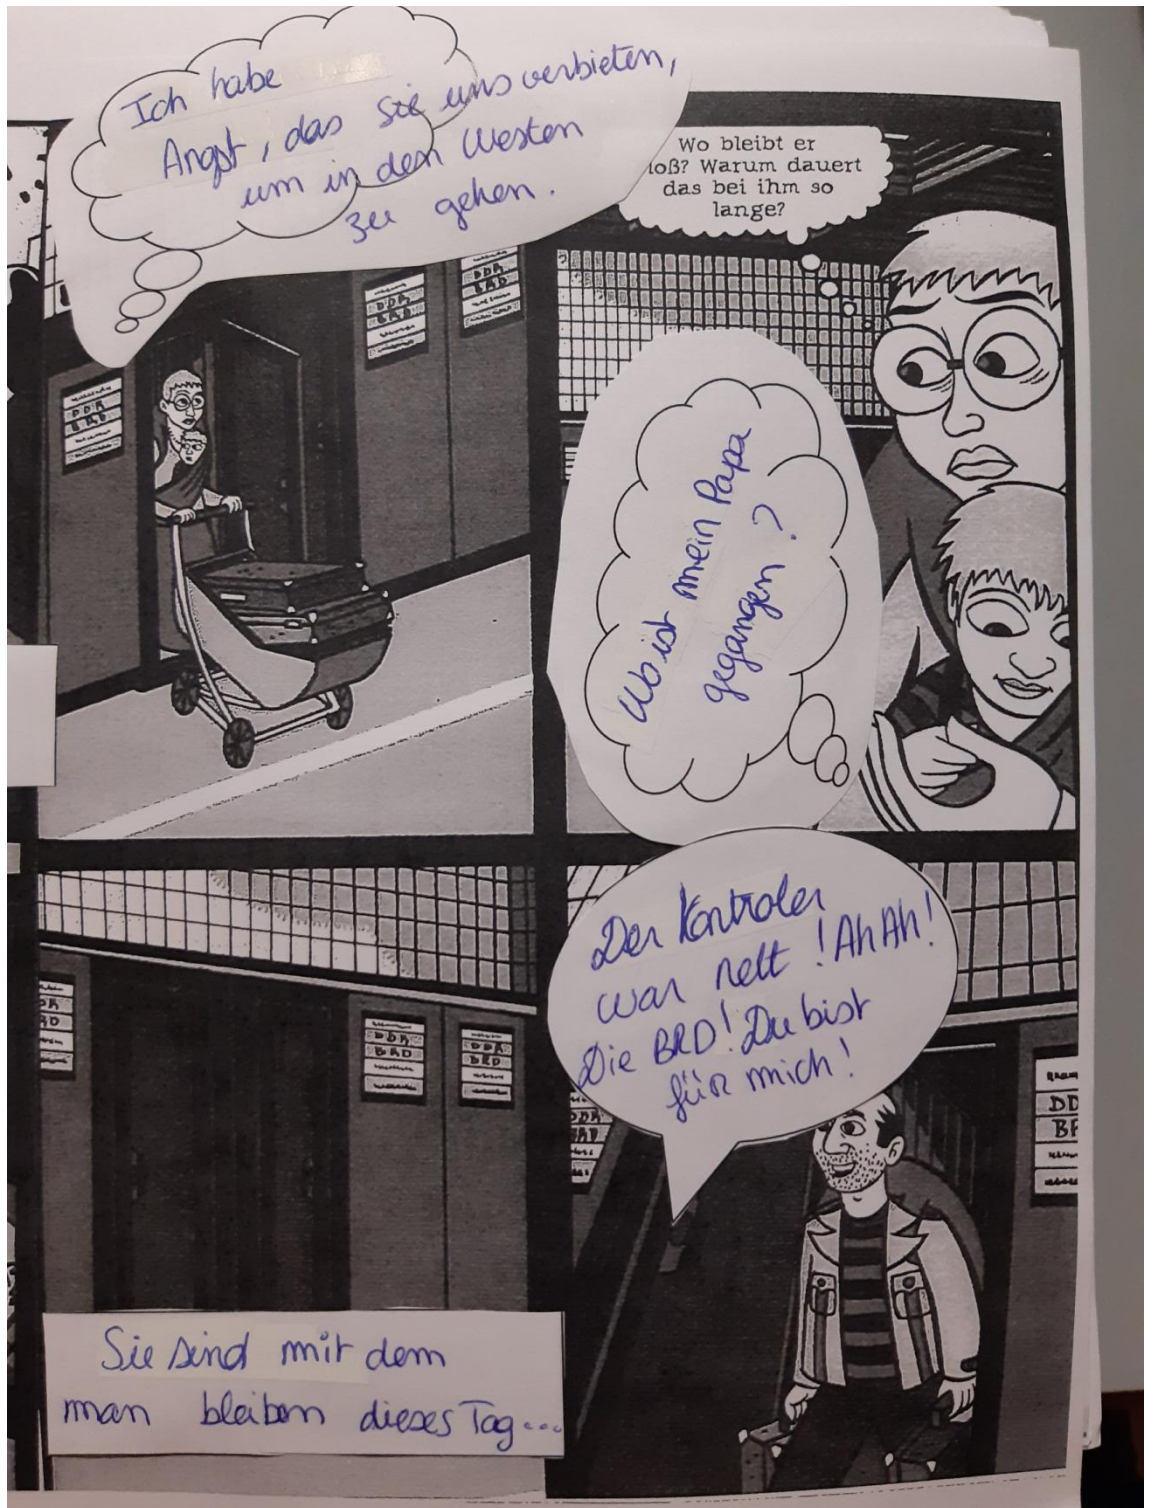 Ich habe
Angst, das Sie uns verbieten,
um in den Westen
zu gehen.
Wo bleibt er
loß? Warum dauert
das bei ihm so
lange?
DDR
BRD
DDR
BRD
DDR
BRD
Wo ist mein Papa
gegangen ?
Der Kontroler
war nett ! Ah Ah!
Die BRD! Du bist
für mich !
DDR
RD
DDR
BRD
DDR
BRD
DDR
BRD
DD
BR
Sie sind mit dem
man bleiben dieses Tag...